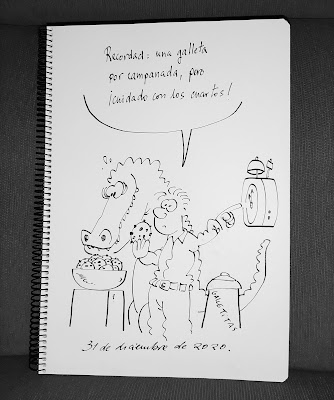 Recordad: una galleta
por campanada, pero
¡cuidado con los cuartos!
GALLETITAS
31 de diciembre de 2020.